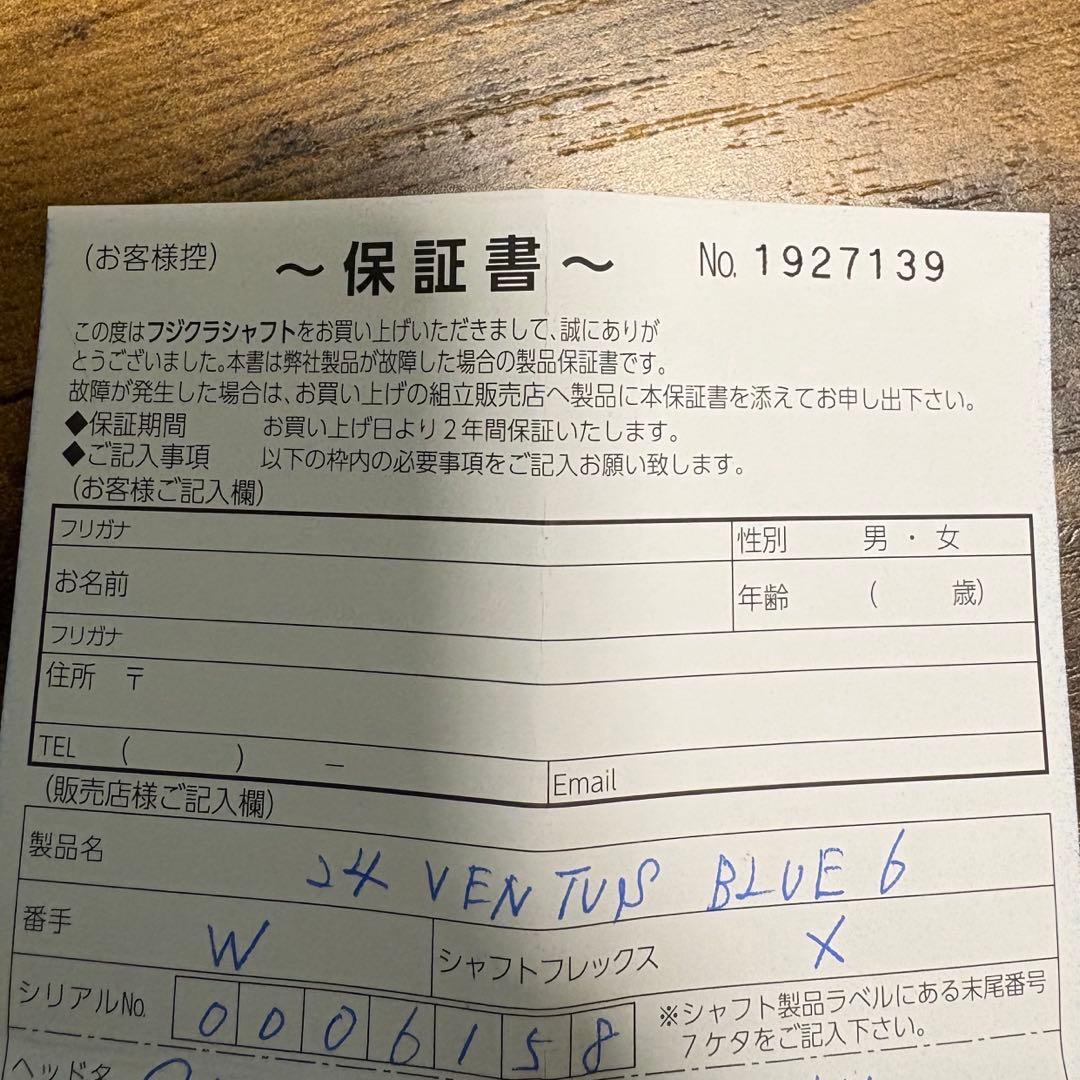 (お客様控) ～保証書～ No. 1927139
この度はフジクラシャフトをお買い上げいただきまして、誠にありが
とうございました。本書は弊社製品が故障した場合の製品保証書です。
故障が発生した場合は、お買い上げの組立販売店へ製品に本保証書を添えてお申し出下さい。
◆保証期間 お買い上げ日より2年間保証いたします。
◆ご記入事項 以下の枠内の必要事項をご記入お願い致します。
(お客様ご記入欄)
フリガナ 性別 男・女
お名前 年齢 ( 歳)
フリガナ
住所 〒
TEL ( ) － Email
(販売店様ご記入欄)
製品名 24 VENTUS BLUE 6
番手 W シャフトフレックス X
シリアルNo. 0006158 ※シャフト製品ラベルにある末尾番号
7ケタをご記入下さい。
ヘッド名